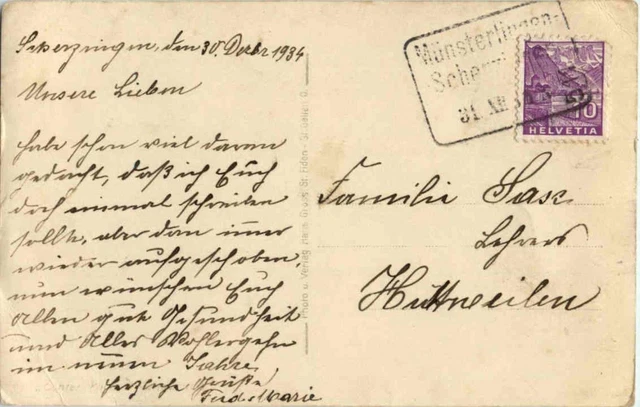 Scherzingen, den 30. Dezbr 1934
Unsere Lieben
habe schon viel daran
gedacht, daß ich Euch
doch einmal schreiben
sollte, aber dan imer
wieder aufgeschoben,
nun wünschen Euch
Allen gute Gesundheit
und Alles Wohlergehn
im neuen Jahre
herzliche Grüße
Marie
Münsterlingen-
31. XII.
10
HELVETIA
Familie Sax
Lehrers
Hüttweilen
Photo u. Verlag Hans Gross, St. Fiden - St. Gallen O.